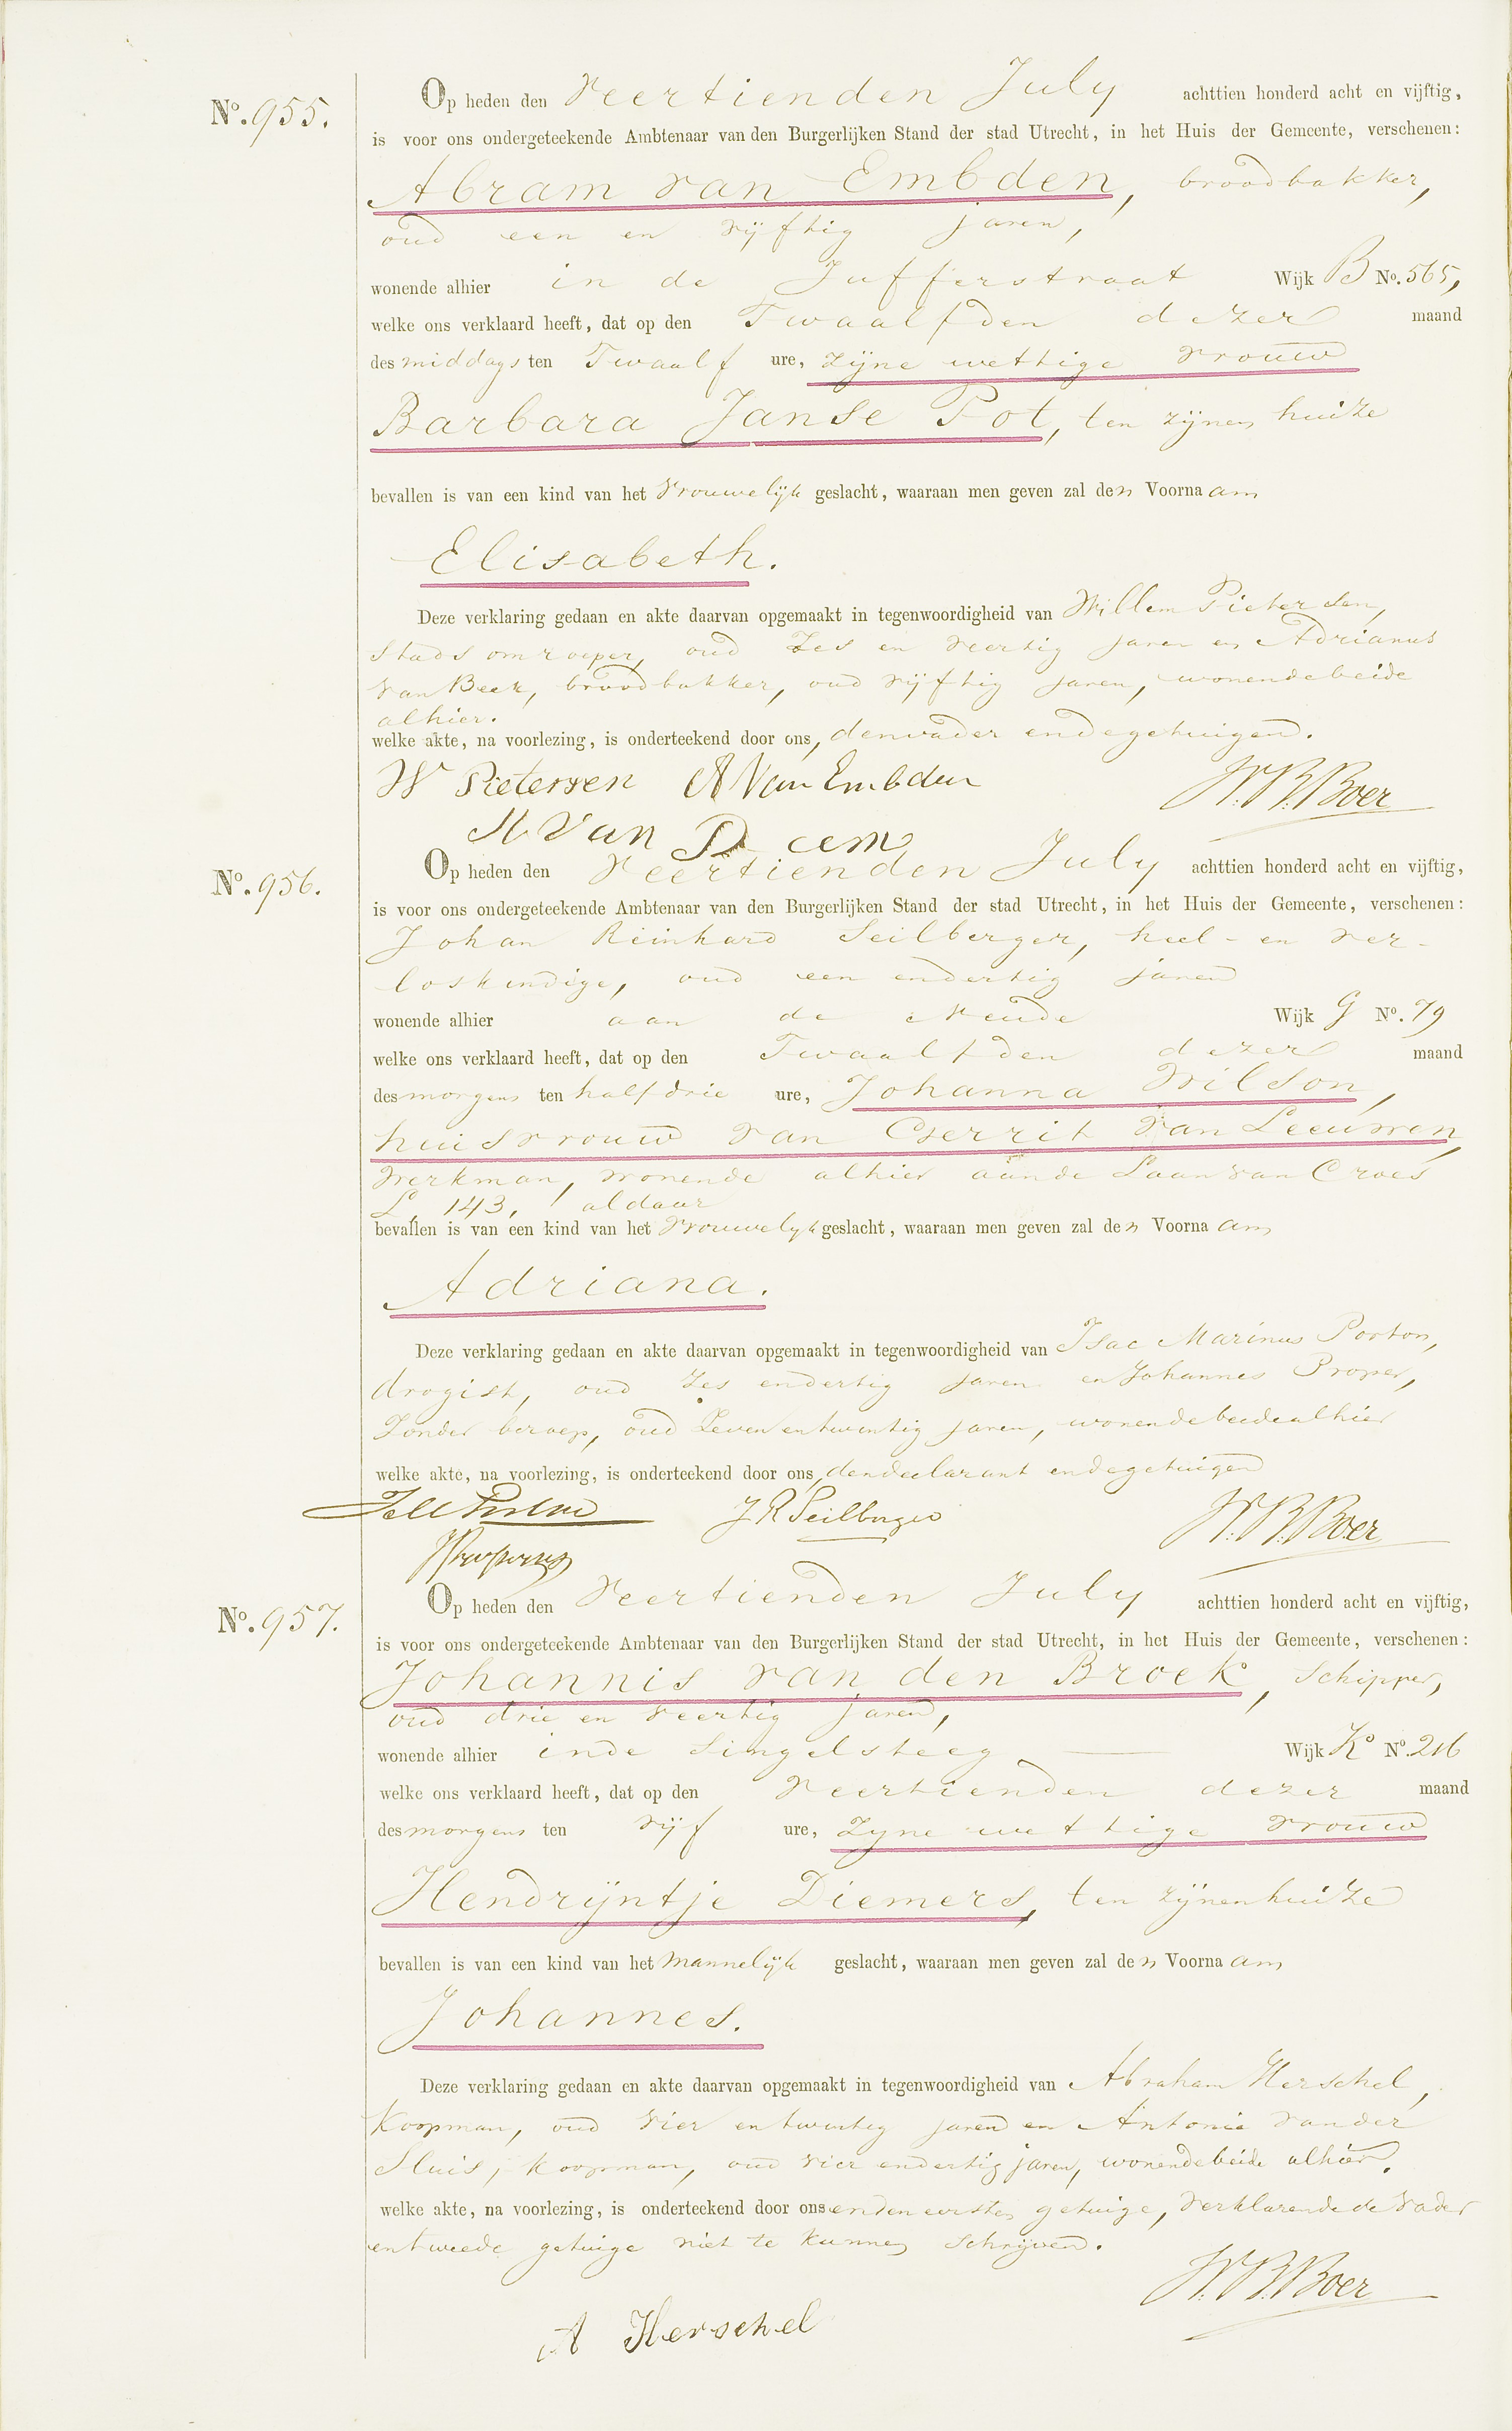 Nº. 955.
Op heden den Veertienden July achttien honderd acht en vijftig,
is voor ons ondergeteekende Ambtenaar van den Burgerlijken Stand der stad Utrecht, in het Huis der Gemeente, verschenen:
Abram van Embden, broodbakker,
oud een en vijftig jaren,
wonende alhier in de Jufferstraat Wijk B Nº. 565,
welke ons verklaard heeft, dat op den Twaalfden dezer maand
des middags ten Twaalf ure, zijne wettige vrouw
Barbara Janse Pot, ten zijnen huize
bevallen is van een kind van het vrouwelijk geslacht, waaraan men geven zal den Voornaam
Elisabeth.
Deze verklaring gedaan en akte daarvan opgemaakt in tegenwoordigheid van Willem Pietersen,
Stads omroeper, oud Zes en veertig jaren en Adrianus
van Beek, broodbakker, oud vijftig jaren, wonende beide
alhier.
welke akte, na voorlezing, is onderteekend door ons, den vader en de getuigen.
W Pietersen A Van Embden W. B. Boer
Nº. 956.
Op heden den Veertienden July achttien honderd acht en vijftig,
is voor ons ondergeteekende Ambtenaar van den Burgerlijken Stand der stad Utrecht, in het Huis der Gemeente, verschenen:
Johan Reinhard Seilberger, heel- en ver-
loskundige, oud een en dertig jaren
wonende alhier aan de Neude Wijk G Nº. 79
welke ons verklaard heeft, dat op den Twaalfden dezer maand
des morgens ten half drie ure, Johanna Wilson,
huisvrouw van Gerrit van Leeuwen,
werkman, wonende alhier aan de Laan van Croes
L. 143, aldaar
bevallen is van een kind van het vrouwelyk geslacht, waaraan men geven zal den Voornaam
Adriana.
Deze verklaring gedaan en akte daarvan opgemaakt in tegenwoordigheid van Isac Marinus Porton,
drogist, oud Zes en dertig jaren en Johannes Proper,
Zonder beroep, oud Zeven en twintig jaren, wonende beide alhier
welke akte, na voorlezing, is onderteekend door ons, den declarant en de getuigen
J R Seilberger W. B. Boer
Nº. 957.
Op heden den Veertienden July achttien honderd acht en vijftig,
is voor ons ondergeteekende Ambtenaar van den Burgerlijken Stand der stad Utrecht, in het Huis der Gemeente, verschenen:
Johannis van den Broek, Schipper,
oud drie en veertig jaren,
wonende alhier in de Singelsteeg Wijk K Nº. 216
welke ons verklaard heeft, dat op den Veertienden dezer maand
des morgens ten vijf ure, Zyne wettige vrouw
Hendrijntje Diemers, ten zijnen huize
bevallen is van een kind van het Mannelijk geslacht, waaraan men geven zal den Voornaam
Johannes.
Deze verklaring gedaan en akte daarvan opgemaakt in tegenwoordigheid van Abraham Herschel,
Koopman, oud vier en twintig jaren en Antonie van der
Sluis, Koopman, oud vier en dertig jaren, wonende beide alhier.
welke akte, na voorlezing, is onderteekend door ons en den eersten getuige, verklarende de vader
en tweede getuige niet te kunnen schrijven.
W. B. Boer
A Herschel